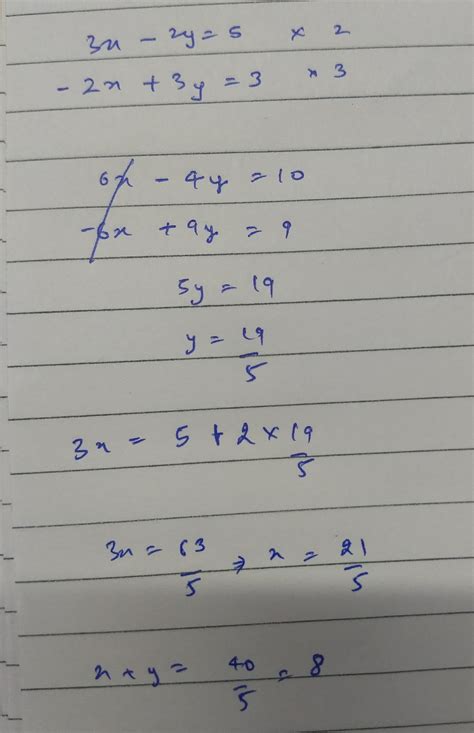 3x - 2y = 5 × 2
- 2x + 3y = 3 × 3
6x - 4y = 10
-6x + 9y = 9
5y = 19
y = 19/5
3x = 5 + 2 × 19/5
3x = 63/5 ⇒ x = 21/5
x + y = 40/5 = 8